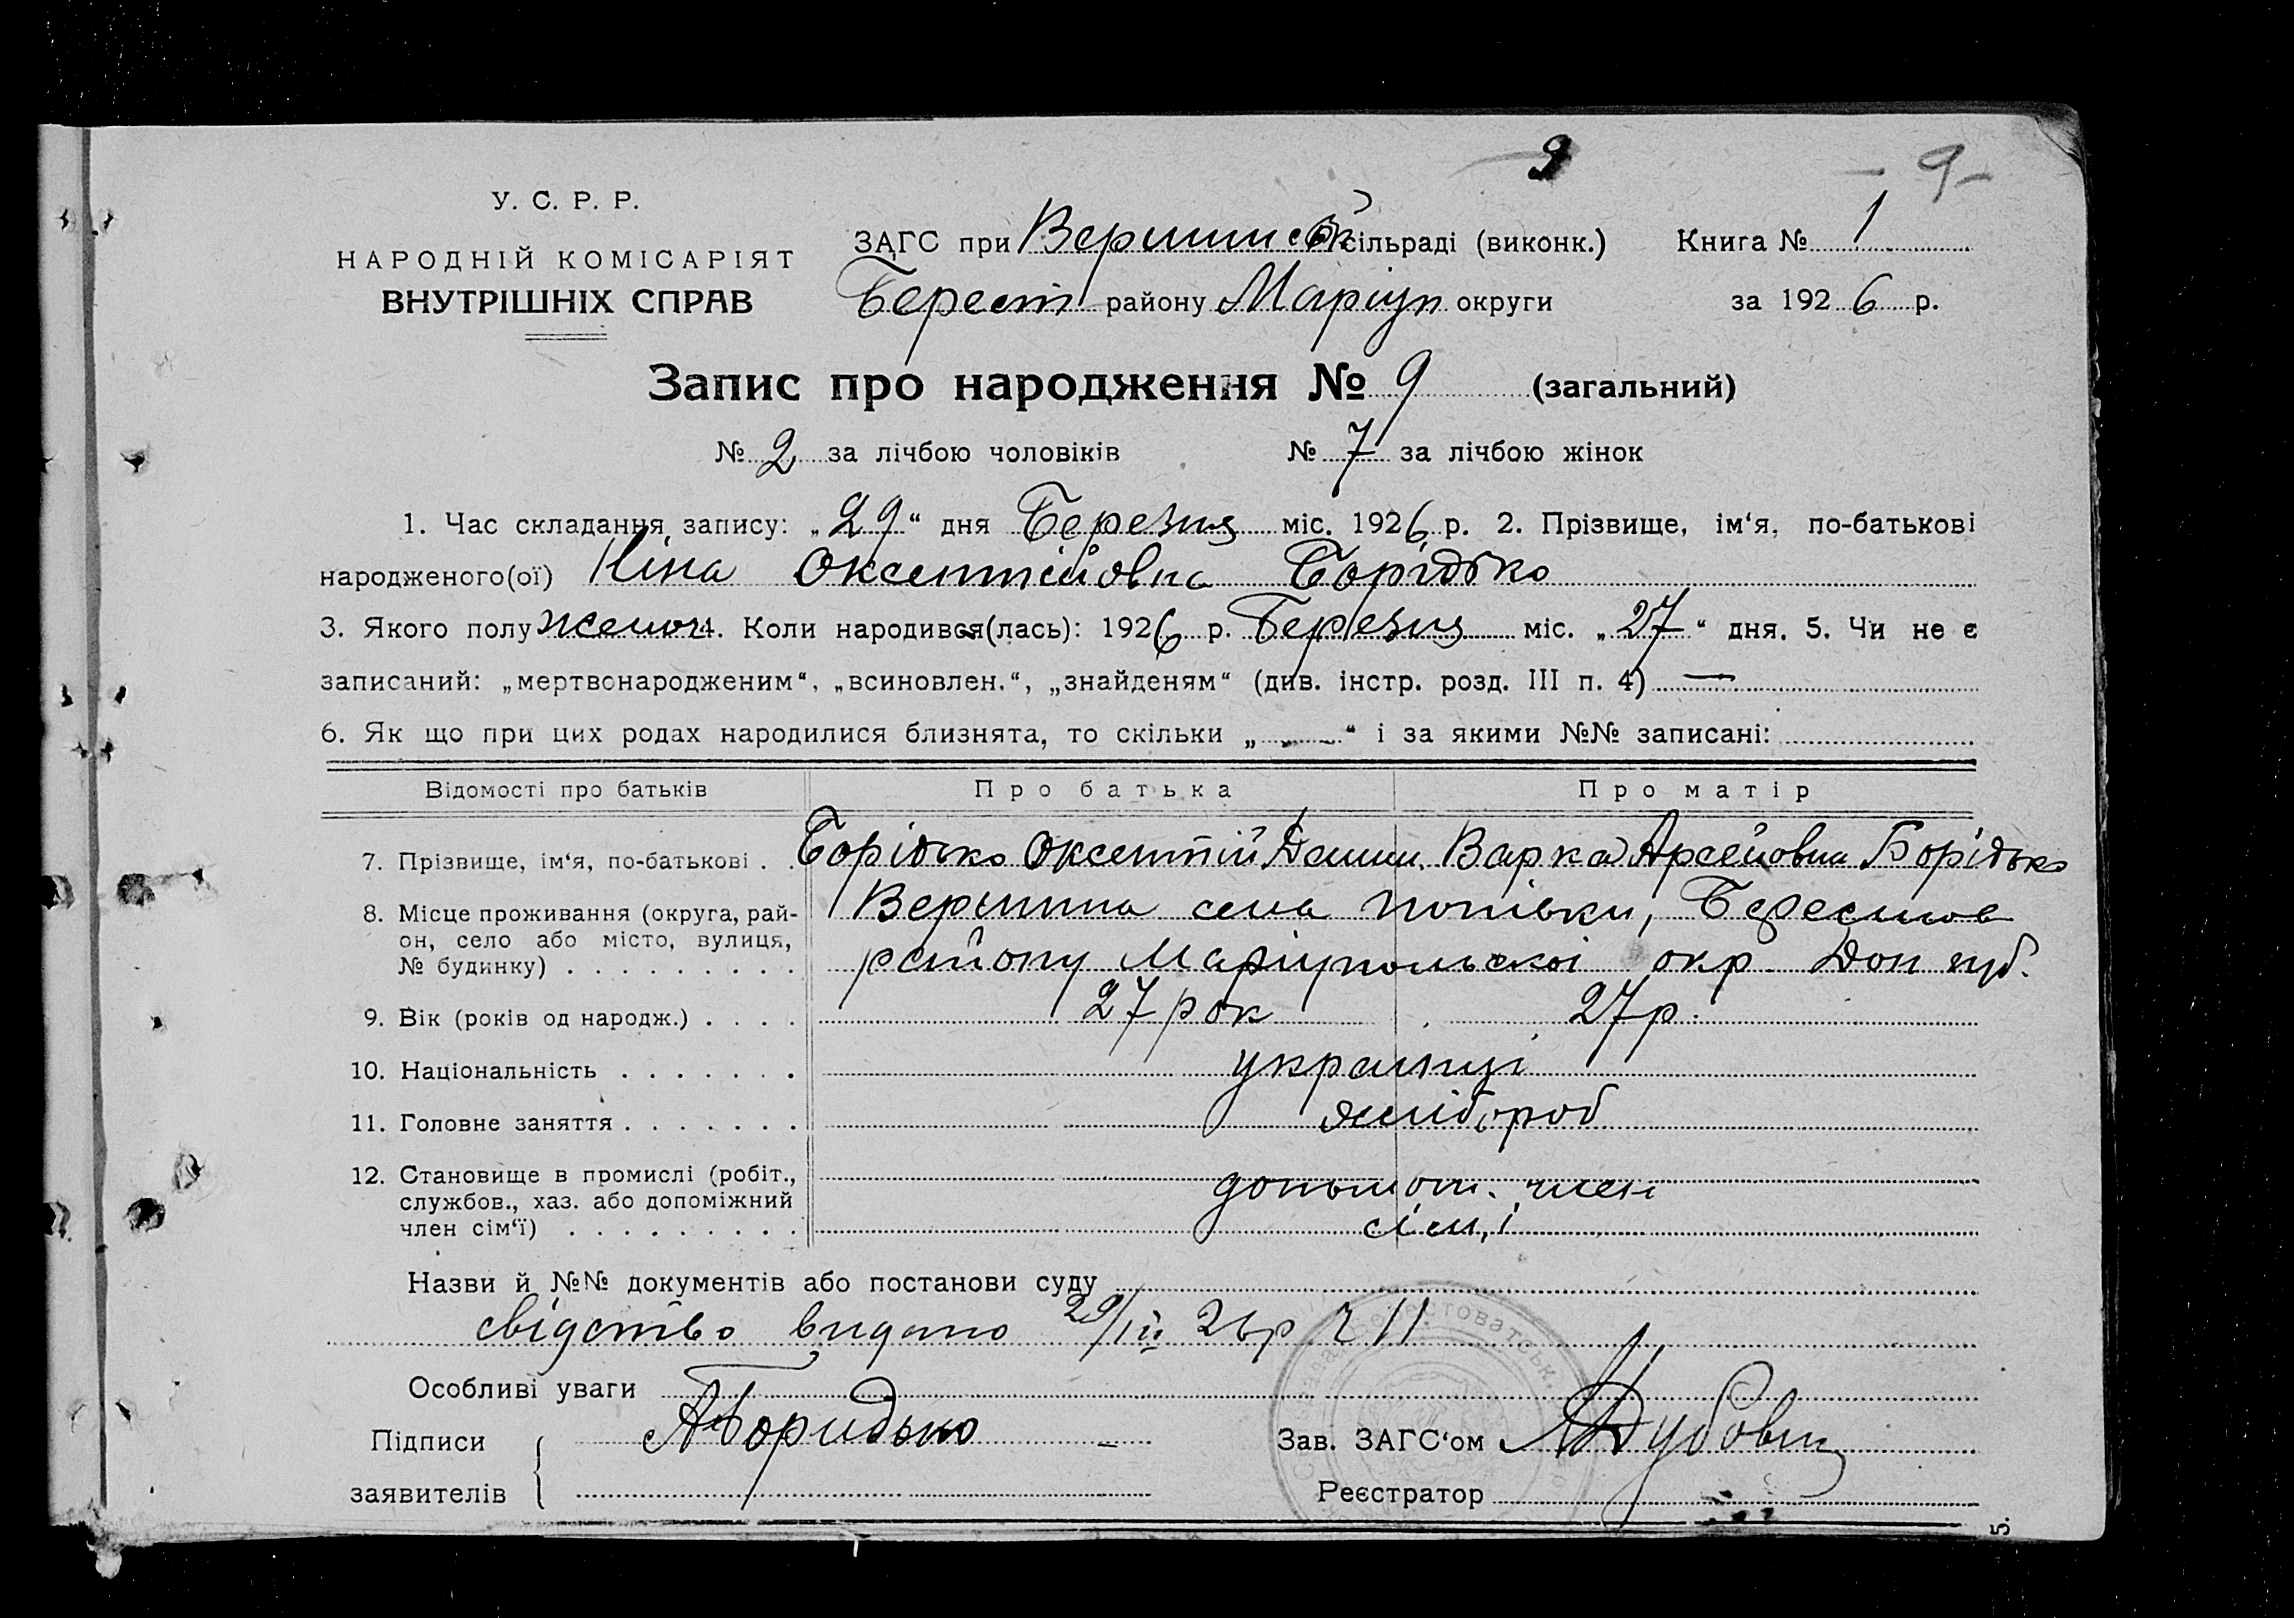 9
- 9 -
У. С. Р. Р.
НАРОДНІЙ КОМІСАРІЯТ
ВНУТРІШНІХ СПРАВ
ЗАГС при Вершинській сільраді (виконк.) Книга № 1
Берест району Маріуп округи за 1926 р.
Запис про народження № 9 (загальний)
№ 2 за лічбою чоловіків № 7 за лічбою жінок
1. Час складання запису: „29“ дня Березня міс. 1926 р. 2. Прізвище, ім‘я, по-батькові
народженого(ої) Ніна Оксентіївовна Борідько
3. Якого полу жіноч 4. Коли народився(лась): 1926 р. Березня міс. „27“ дня. 5. Чи не є
записаний: „мертвонародженим“, „всиновлен.“, „знайденям“ (див. інстр. розд. III п. 4) —
6. Як що при цих родах народилися близнята, то скільки „ — “ і за якими №№ записані:
Відомості про батьків Про батька Про матір
7. Прізвище, ім‘я, по-батькові . . Борідько Оксентій Демин. Варка Арсеновна Борідько
8. Місце проживання (округа, рай- Вершина села Попівки, Берестов
он, село або місто, вулиця,
№ будинку) . . . . . . . . . району Маріупольскоі окр Дон губ.
9. Вік (років од народж.) . . . . 27 рок 27 р.
10. Національність . . . . . . . украінці
11. Головне заняття . . . . . . . хлібороб
12. Становище в промислі (робіт., допомож. член
службов., хаз. або допоміжний
член сім‘ї) . . . . . . . . . сімі
Назви й №№ документів або постанови суду
свідотво видано 29/III 26р Ч 11
Особливі уваги
Підписи АБоридько Зав. ЗАГС‘ом Дубовиц
заявителів Реєстратор
5.